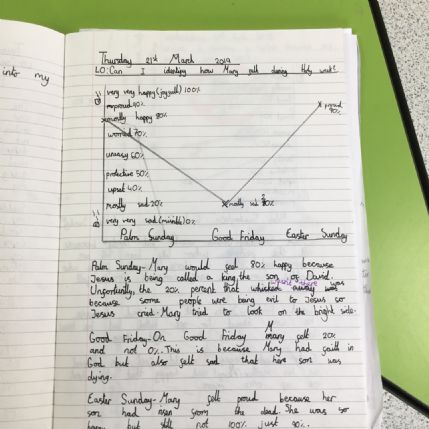 into my
Thursday 21st March 2019
LO: Can I identify how Mary felt during Holy week?
very very happy (joyfull) 100%
proud 90%
mostly happy 80%
worried 70%
proud 90%
uneasy 60%
protective 50%
upset 40%
mostly sad 20%
mostly sad 20%
very very sad 0%
Palm Sunday Good Friday Easter Sunday
Palm Sunday-Mary would feel 80% happy because
Jesus is being called a king, the son of David.
wasn't there
the 20% percent that was
because some people were being evil to Jesus so
Jesus cried. Mary tried to look on the bright side.
Good Friday-On Good Friday Mary felt 20%
and not 0%. This is because Mary had faith in
God but also felt sad that here son was
dying.
Easter Sunday-Mary felt proud because her
son had risen from the dead. She was so
happy but still not 100% just 90%.